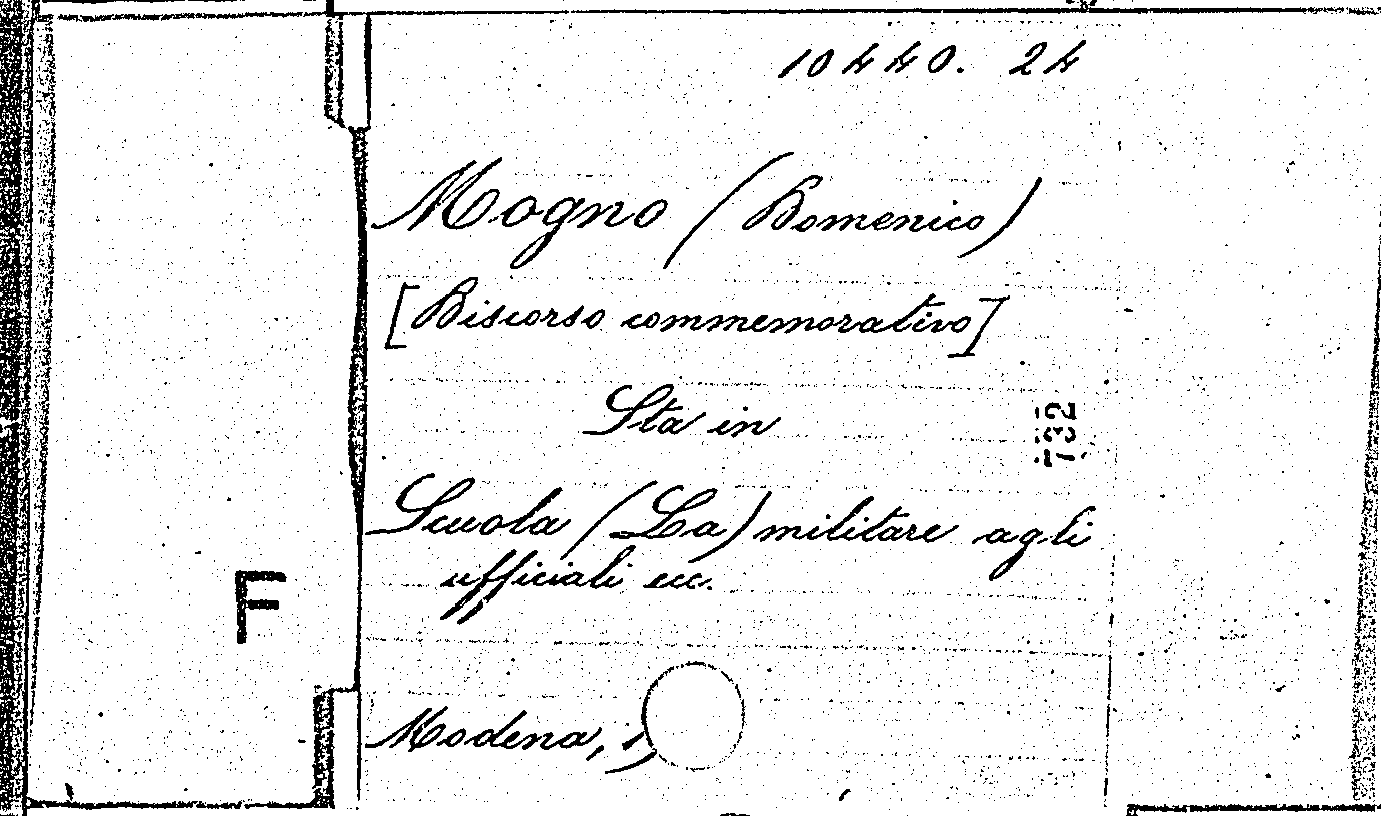 10440. 24
Mogno (Domenico)
[Discorso commemorativo]
Sta in
Scuola (La) militare agli
ufficiali ecc.
F
Modena,